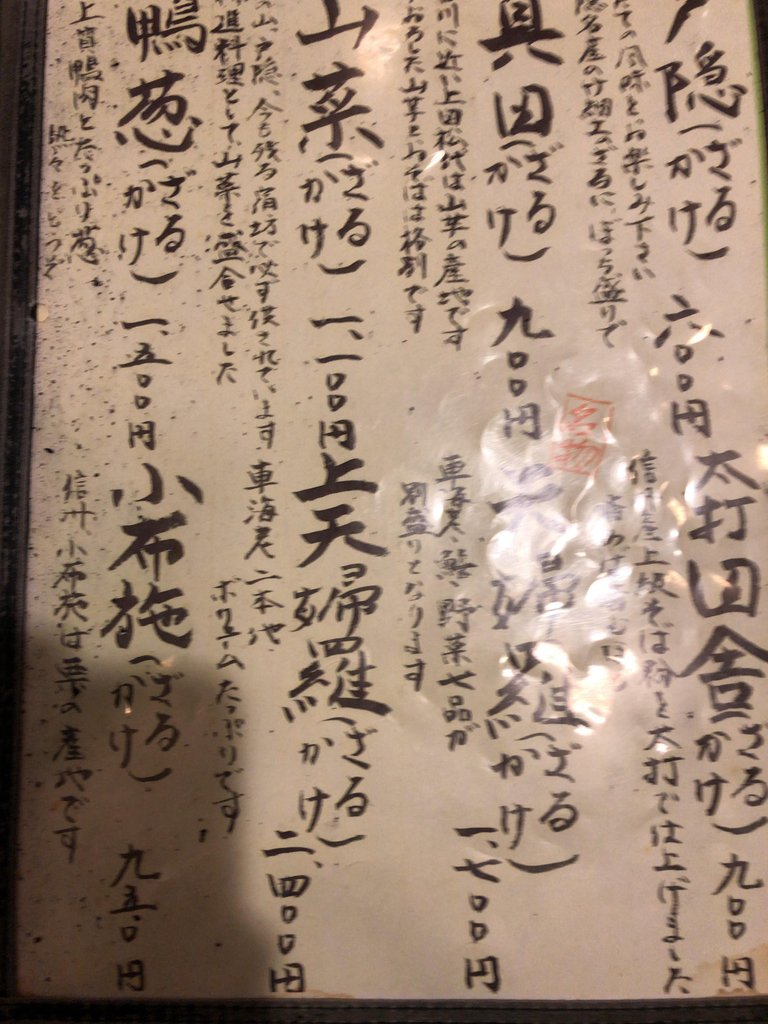 戸隠(ざる かけ) 六〇〇円
たての風味をお楽しみ下さい
隠名産の竹細工のざるに、ぼっち盛りで
真田(ざる かけ) 九〇〇円
川に近い上田松代は山芋の産地です
おろした山芋とおそばは格別です
山菜(ざる かけ) 一、一〇〇円
山、戸隠、今も残る宿坊で必ず供されています
精進料理として、山菜を盛合せました
鴨葱(ざる かけ) 一、五〇〇円
上質鴨肉とたっぷり葱
太打田舎(ざる かけ) 九〇〇円
信州産上級そば粉を太打で仕上げました
天婦羅(ざる かけ) 一、七〇〇円
車海老、鱚、野菜七品が
別盛りとなります
上天婦羅(ざる かけ) 二、四〇〇円
車海老二本他、
ボリュームたっぷりです
小布施(ざる かけ) 九五〇円
信州、小布施は栗の産地です